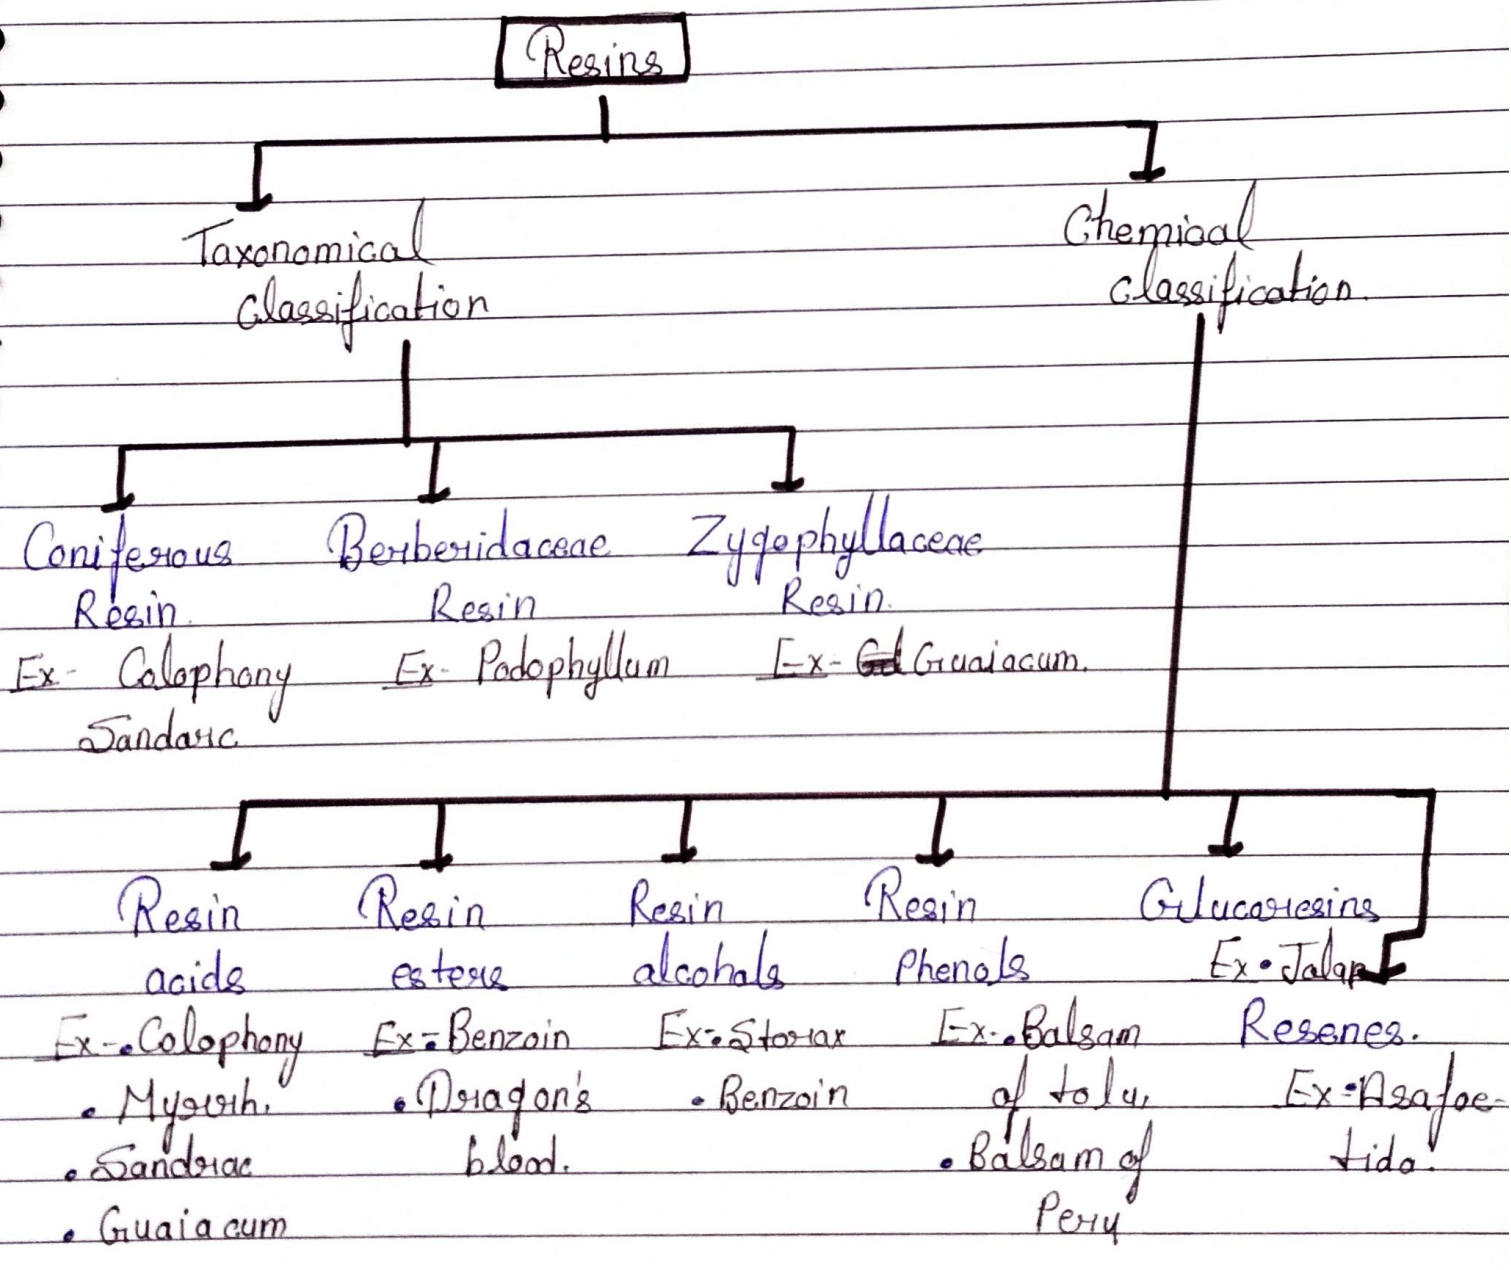 Resins
Taxonomical
Classification
Chemical
Classification.
Coniferous
Resin.
Ex- Colophony
Sandarc
Berberidaceae
Resin
Ex- Podophyllum
Zygophyllaceae
Resin.
Ex- Guaiacum.
Resin
acids
Ex-. Colophony
• Myrrh.
• Sandrac
• Guaiacum
Resin
esters
Ex-• Benzoin
• Dragon's
blood.
Resin
alcohols
Ex-• Storax
• Benzoin
Resin
Phenols
Ex-• Balsam
of tolu,
• Balsam of
Peru
Glucoresins
Ex • Jalap
Resenes.
Ex • Asafoe-
tida.